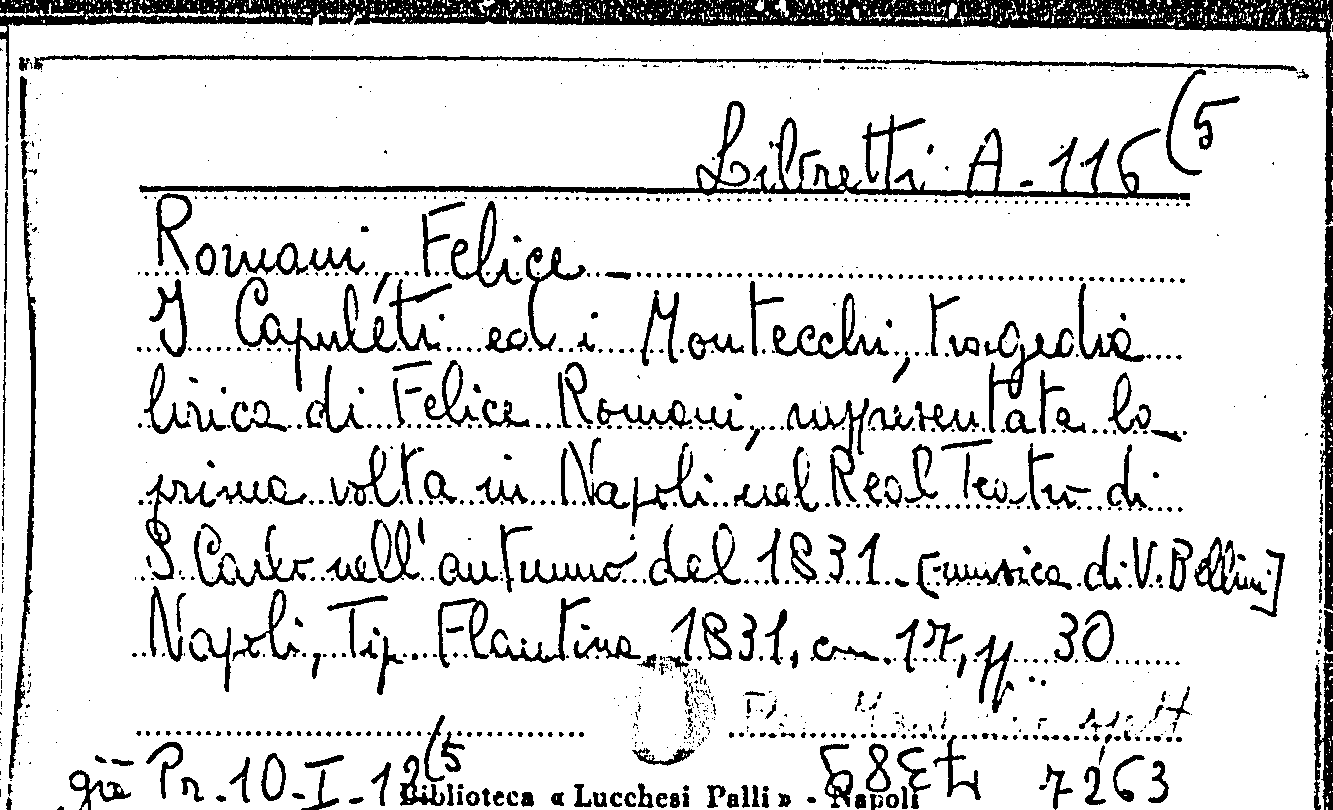 Libretti A-116(5
Romani, Felice -
I Capuleti ed i Montecchi, tragedia
lirica di Felice Romani, rappresentata la
prima volta in Napoli nel Real Teatro di
S. Carlo nell'autunno del 1831. [musica di V. Bellini]
Napoli, Tip. Flautina, 1831, cm. 17, pp. 30
già Pr. 10-I-12(5
7263
Biblioteca « Lucchesi Palli » - Napoli